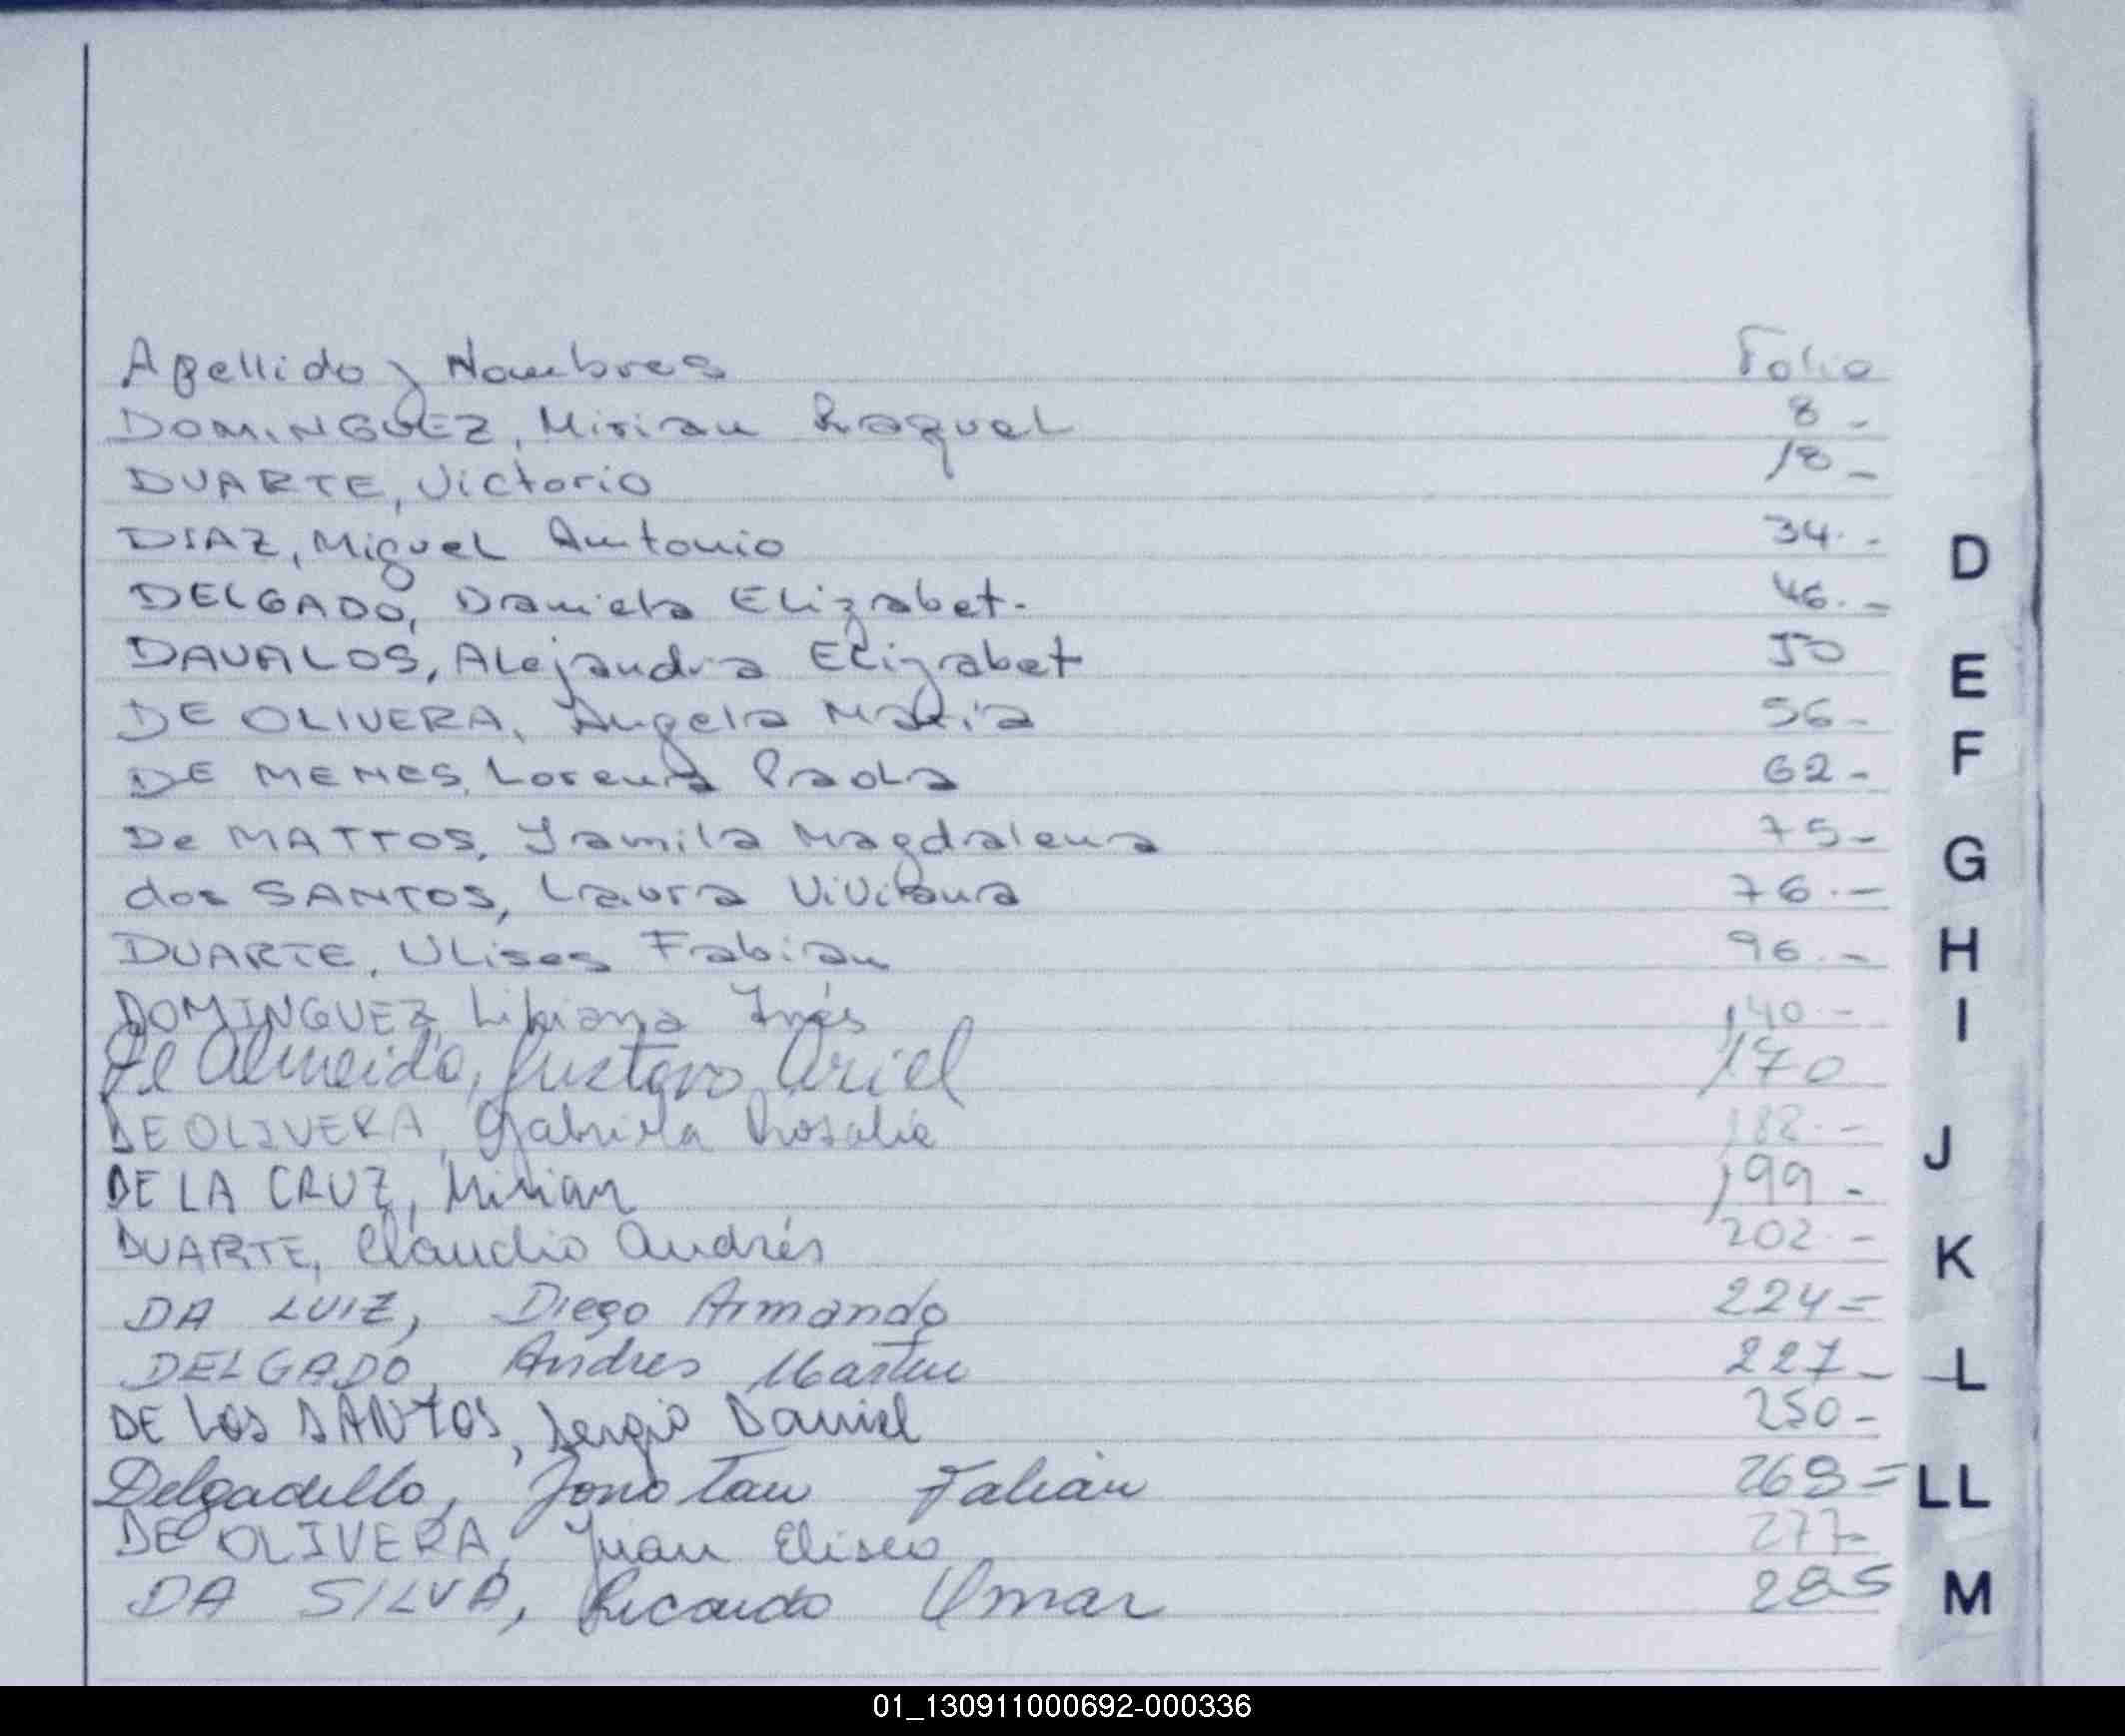 Apellido y Nombres Folio
DOMINGUEZ, Mirian Raquel 8 -
DUARTE, Victorio 18 -
DIAZ, Miguel Antonio 34. -
DELGADO, Daniela Elizabet. 46. -
DAVALOS, Alejandra Elizabet 50
DE OLIVERA, Angela María 56 -
DE MENES, Lorena Paola 62 -
De MATTOS, Yamila Magdalena 75 -
dos SANTOS, Laura Viviana 76. -
DUARTE, Ulises Fabian 96. -
DOMINGUEZ, Libiana Inés 140. -
De Almeida, Gustavo Ariel 170
DE OLIVERA, Gabriela Rosalia 182. -
DE LA CRUZ, Mirian 199 -
DUARTE, Claudio Andrés 202. -
DA LUIZ, Diego Armando 224 =
DELGADO, Andres Martin 227 -
DE LOS SANTOS, Sergio Daniel 250 -
Delgadillo, Jonotan Fabián 269 =
DE OLIVERA, Juan Eliseo 277 -
DA SILVA, Ricardo Omar 285
D
E
F
G
H
I
J
K
L
LL
M
01_130911000692-000336